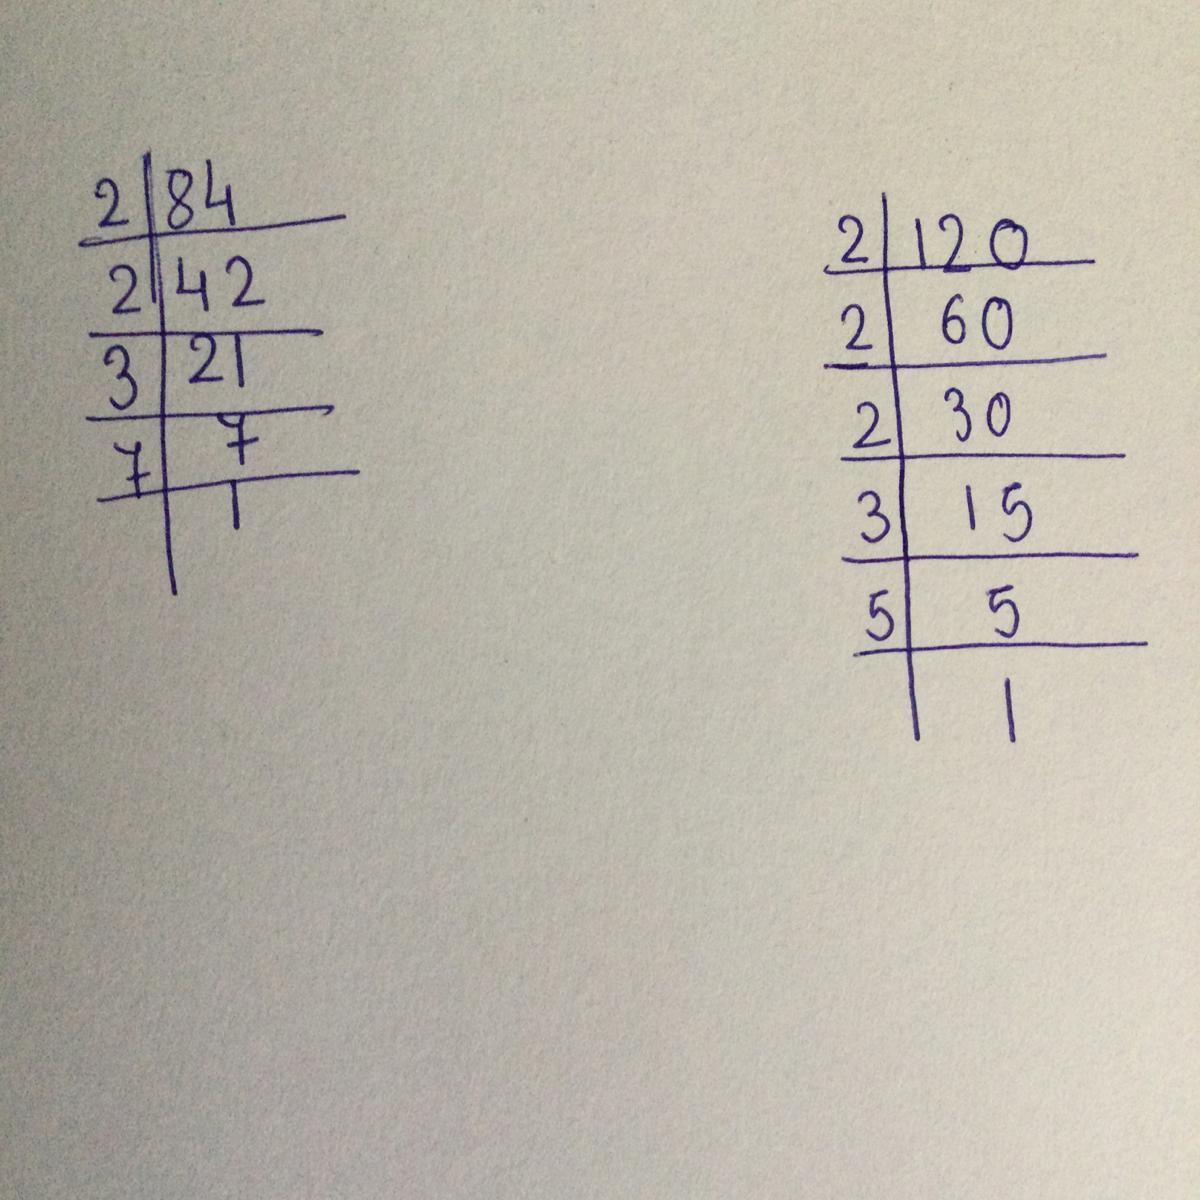 2 84
2 42
3 21
7 7
1
2 120
2 60
2 30
3 15
5 5
1